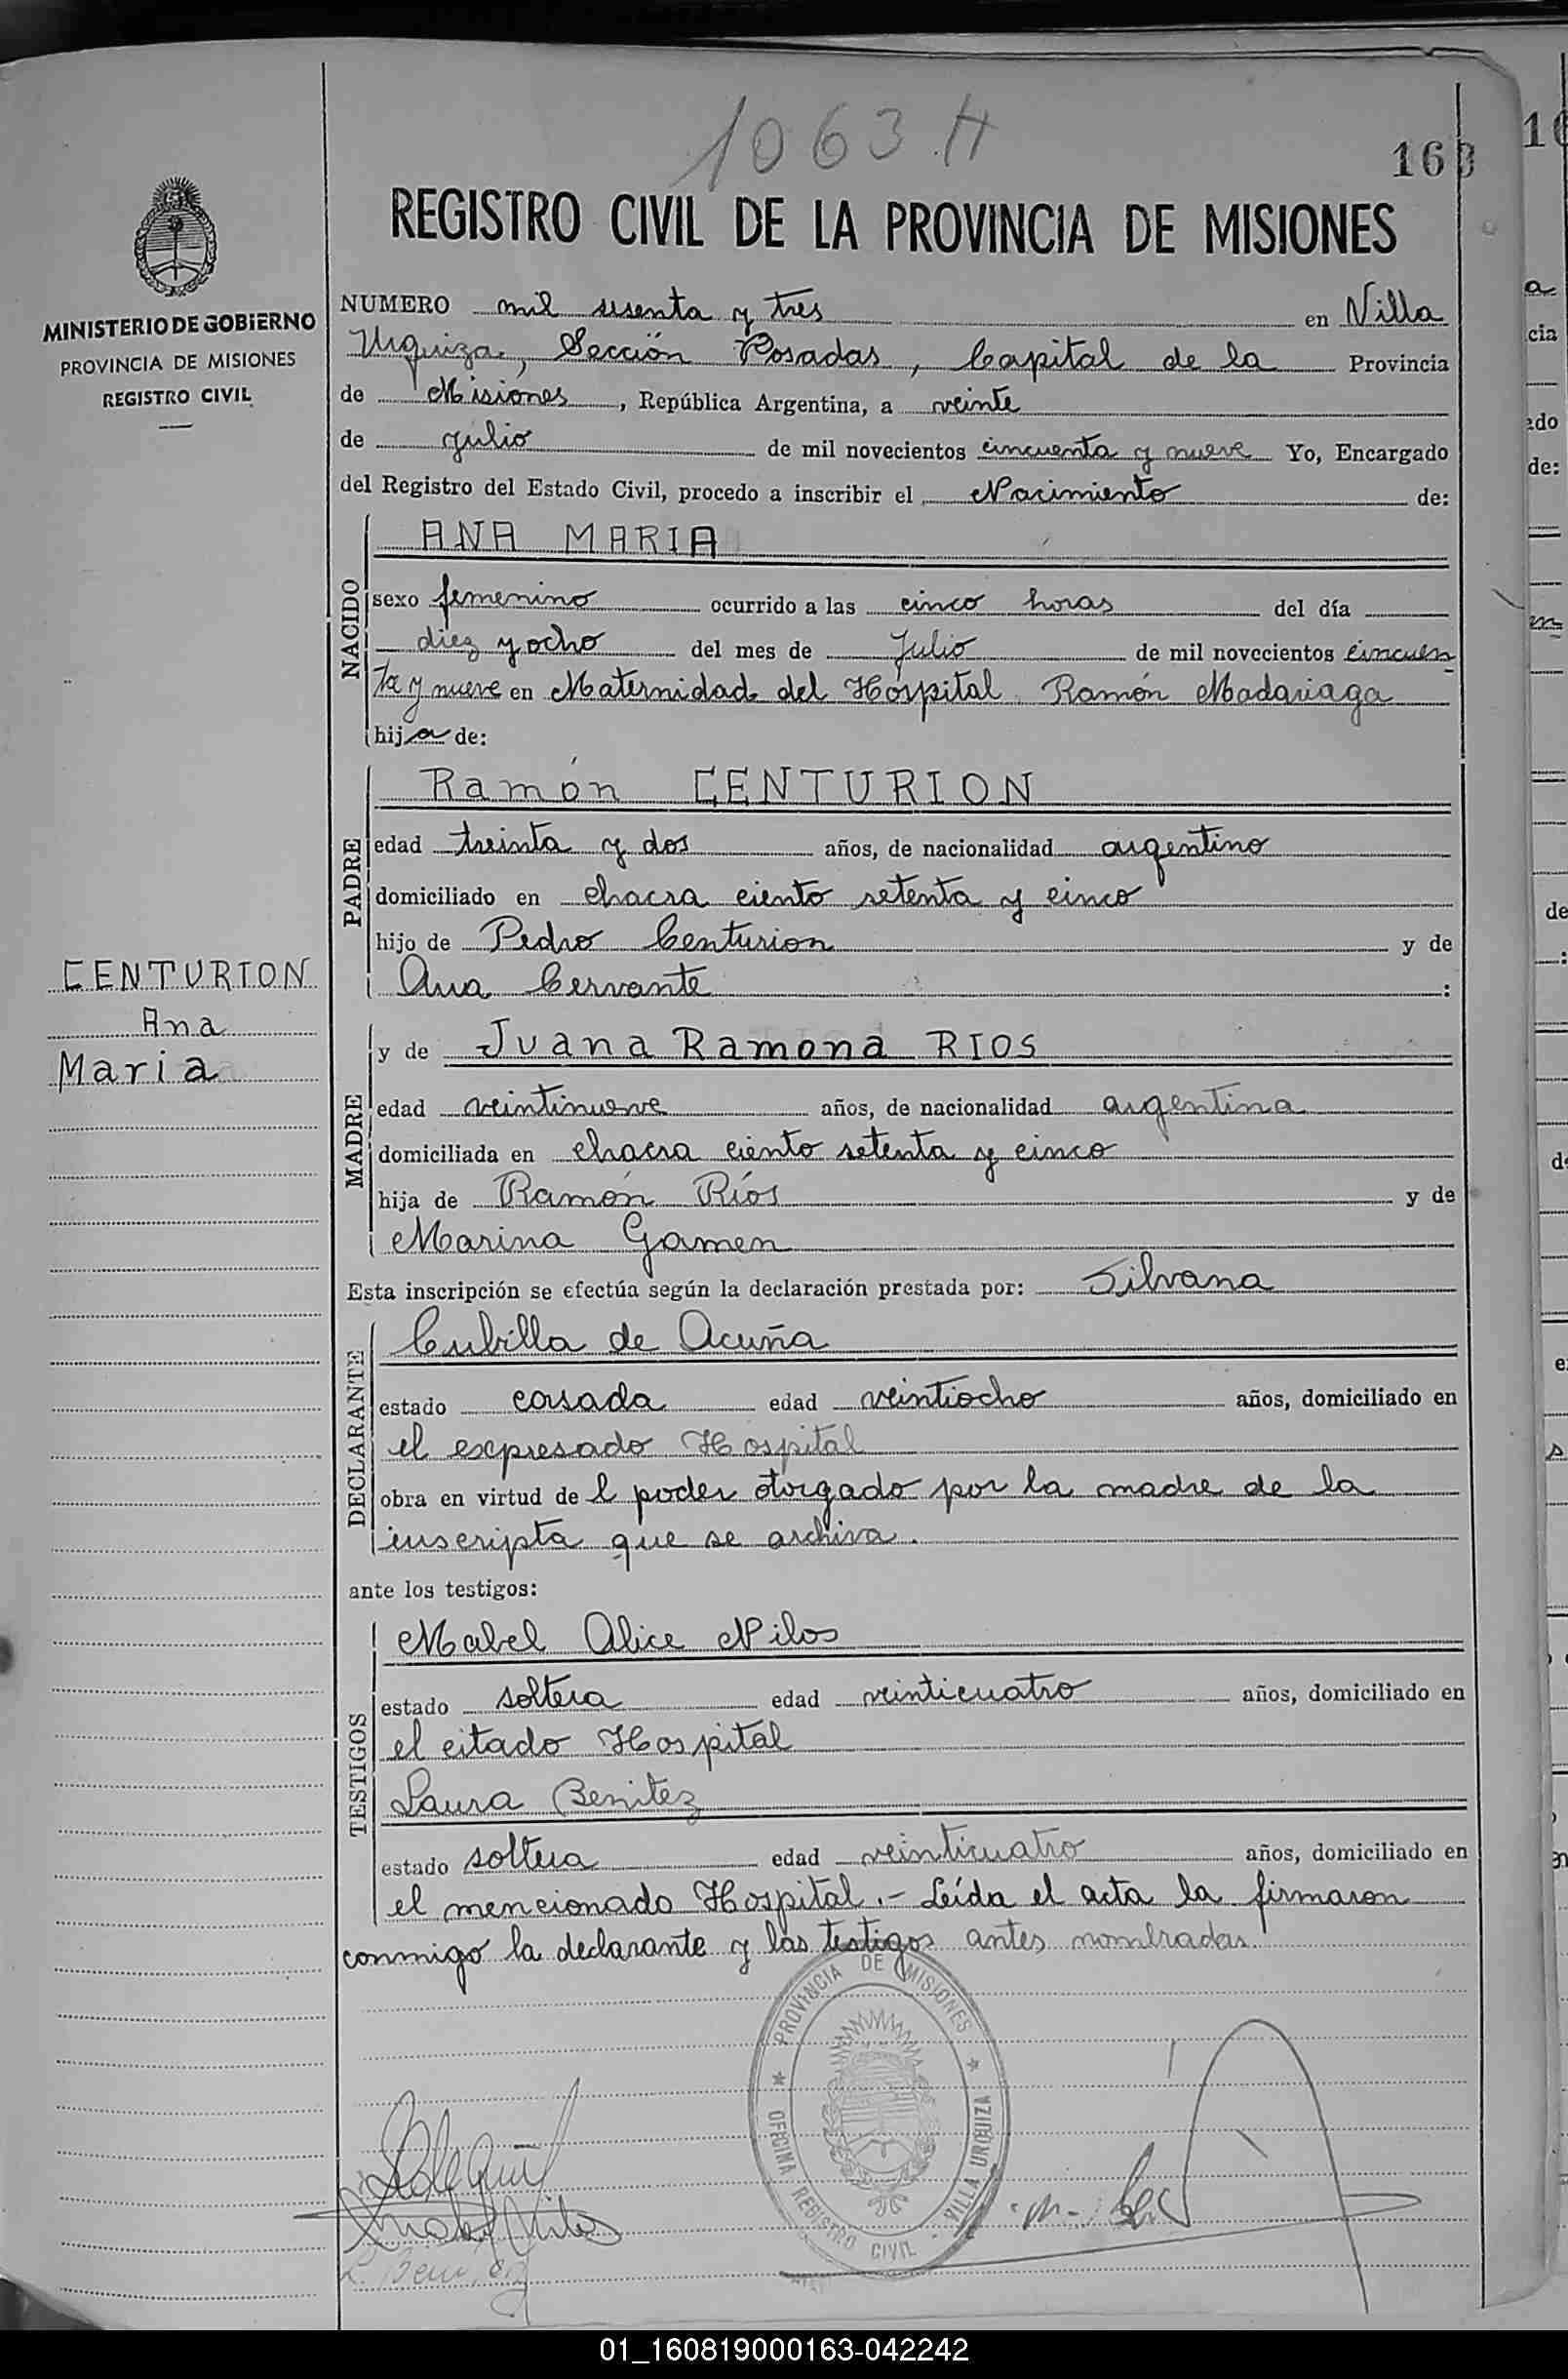 1063 H
163
MINISTERIO DE GOBIERNO
PROVINCIA DE MISIONES
REGISTRO CIVIL
REGISTRO CIVIL DE LA PROVINCIA DE MISIONES
NUMERO mil sesenta y tres en Villa
Urquiza, Sección Posadas, Capital de la Provincia
de Misiones, República Argentina, a veinte
de julio de mil novecientos cincuenta y nueve Yo, Encargado
del Registro del Estado Civil, procedo a inscribir el Nacimiento de:
NACIDO
ANA MARIA
sexo femenino ocurrido a las cinco horas del día
diez y ocho del mes de Julio de mil novecientos cincuen
ta y nueve en Maternidad del Hospital Ramón Madariaga
hija de:
PADRE
Ramón CENTURION
edad treinta y dos años, de nacionalidad argentino
domiciliado en chacra ciento setenta y cinco
hijo de Pedro Centurion y de
Ana Cervante :
CENTURION
Ana
Maria
MADRE
y de Juana Ramona RIOS
edad veintinueve años, de nacionalidad argentina
domiciliada en chacra ciento setenta y cinco
hija de Ramón Ríos y de
Marina Gamen
Esta inscripción se efectúa según la declaración prestada por: Silvana
DECLARANTE
Cubilla de Acuña
estado casada edad veintiocho años, domiciliado en
el expresado Hospital
obra en virtud de l poder otorgado por la madre de la
inscripta que se archiva.
ante los testigos:
TESTIGOS
Mabel Alice Nilos
estado soltera edad veinticuatro años, domiciliado en
el citado Hospital
Laura Benitez
estado soltera edad veinticuatro años, domiciliado en
el mencionado Hospital.- Leída el acta la firmaron
conmigo la declarante y las testigos antes nombradas
PROVINCIA DE MISIONES
OFICINA REGISTRO CIVIL - VILLA URQUIZA
01_160819000163-042242